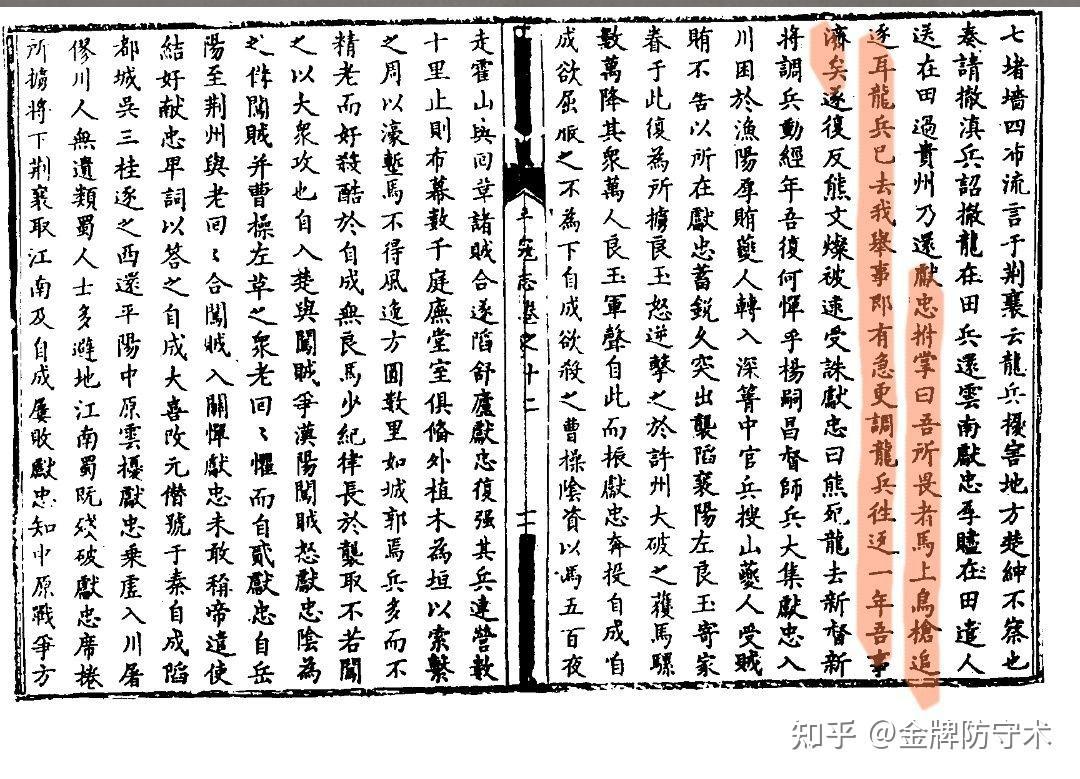 七堵墻四布流言于荆襄云龍兵擾害地方楚紳不察也
奏請撤滇兵詔撤龍在田兵還雲南獻忠厚贐在田遣人
送在田過貴州乃還獻忠拊掌曰吾所畏者馬上鳥槍追
逐耳龍兵已去我舉事即有急更調龍兵往返一年吾事
濟矣遂復反熊文燦被逮受誅獻忠曰熊死龍去新督新
將調兵動經年吾復何憚乎楊嗣昌督師兵大集獻忠入
川困於漁陽厚賄夔人轉入深箐中官兵搜山夔人受賊
賄不告以所在獻忠蓄銳久突出襲陷襄陽左良玉寄家
眷于此復為所擄良玉怒逆擊之於許州大破之獲馬騾
數萬降其衆萬人良玉軍聲自此而振獻忠奔投自成自
成欲屈服之不為下自成欲殺之曹操陰資以馬五百夜
志卷之十二
十一
走霍山與回革諸賊合遂陷舒廬獻忠復强其兵連營數
十里止則布幕數千庭廡堂室俱俻外植木為垣以索繫
之周以濠塹馬不得風逸方圓数里如城郭焉兵多而不
精老而好殺酷於自成無良馬少紀律長於襲取不若闖
之以大衆攻也自入楚與闖賊爭漢陽闖賊怒獻忠陰為
之俻闖賊并曹操左革之衆老回〻懼而自貳獻忠自岳
陽至荆州與老回〻合闖賊入關憚獻忠未敢稱帝遣使
結好獻忠卑詞以答之自成大喜改元僭號于秦自成陷
都城吳三桂逐之西還平陽中原雲擾獻忠乘虛入川屠
僇川人無遺類蜀人士多避地江南蜀既殘破獻忠席捲
所擄將下荆襄取江南及自成屢敗獻忠知中原戰爭方
知乎 @金牌防守术